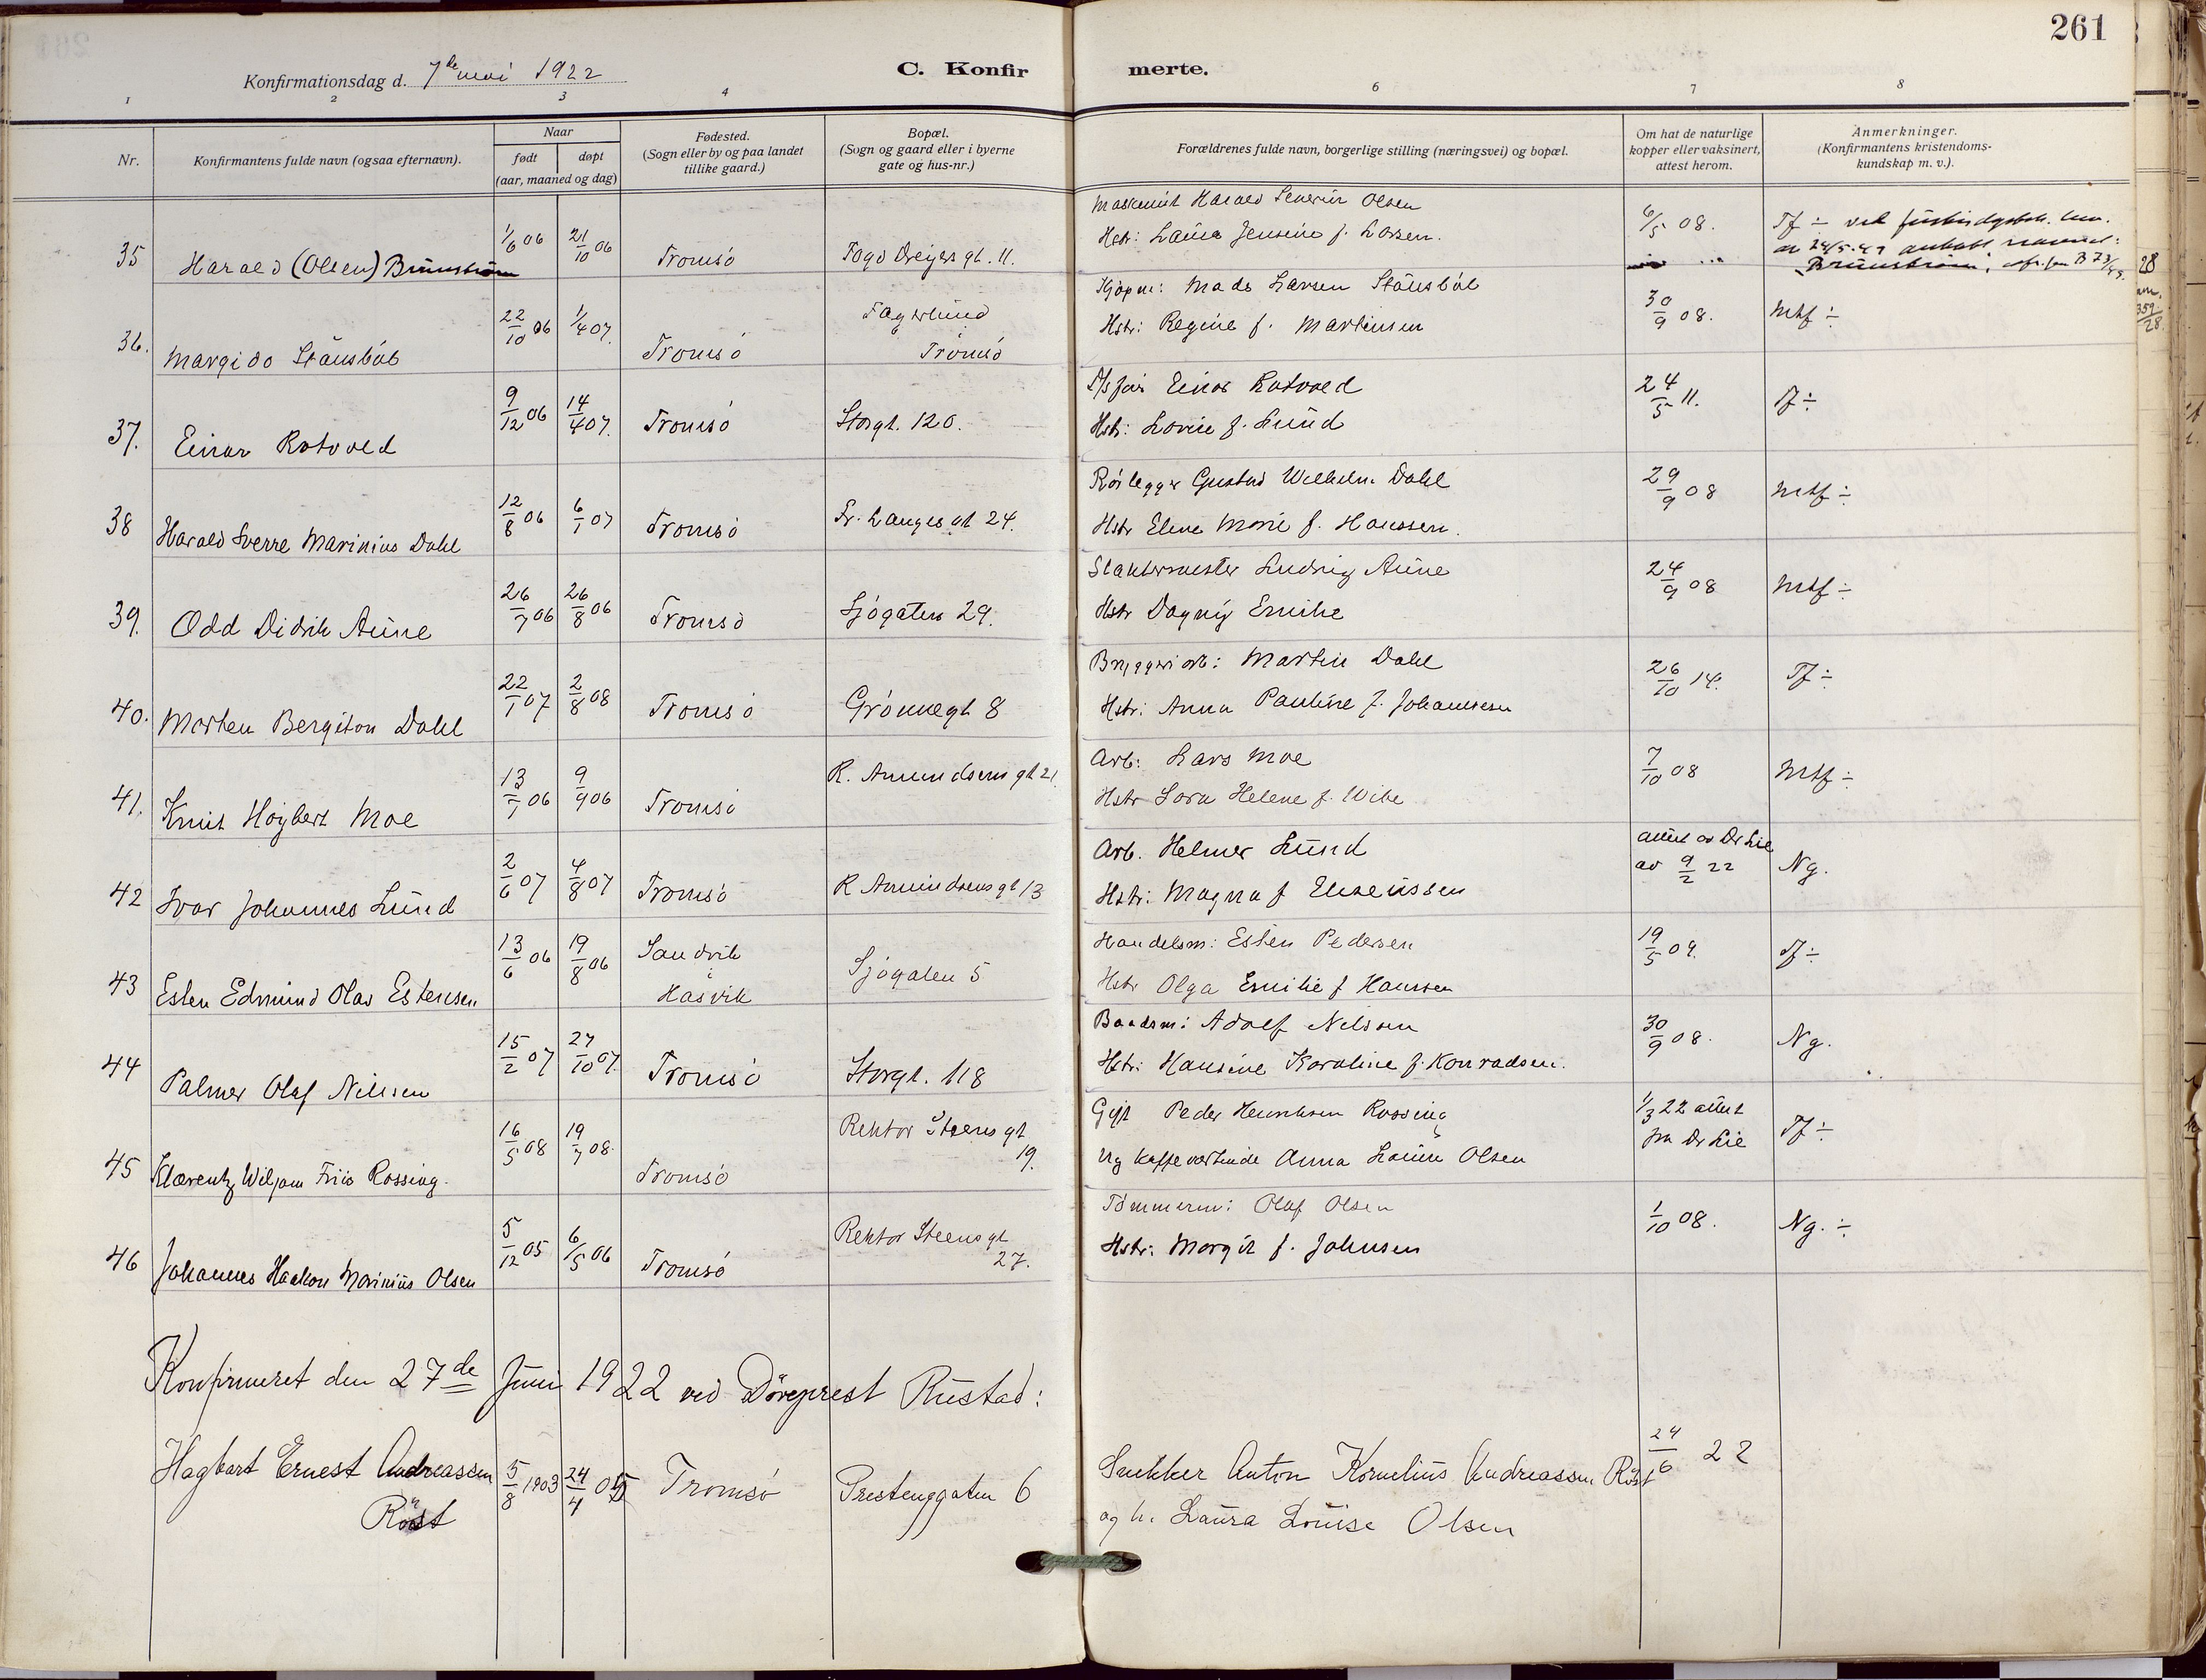 261
Konfirmationsdag d. 7de mai 1922
C. Konfirmerte.
1 2 3 4 6 7 8
Nr.
Konfirmantens fulde navn (ogsaa efternavn).
Naar
født døpt
(aar, maaned og dag)
Fødested.
(Sogn eller by og paa landet
tillike gaard.)
Bopæl.
(Sogn og gaard eller i byerne
gate og hus-nr.)
Forældrenes fulde navn, borgerlige stilling (næringsvei) og bopæl.
Om hat de naturlige
kopper eller vaksinert,
attest herom.
Anmerkninger.
(Konfirmantens kristendoms-
kundskap m. v.).
35 Harald (Olsen) Brünstrøm 1/6 06 21/10 06 Tromsö Fogd Dreyers gt. 11.
Maskinist Harald Severin Olsen
Hstr: Laura Jensine f. Larsen. 6/5 08. Tf ÷
36. Margido Stausböl 22/10 06 1/4 07. Tromsö Fagerlund
Tromsö
Kjøpm: Mads Larsen Stausböl
Hstr: Regine f. Martinsen 30/9 08. Mtf ÷
37. Einar Rotvold 9/12 06 14/4 07. Tromsö Storgt. 120.
Einar Rotvold
Hstr: Lovise f. Lund 24/5 11. Tf ÷
38 Harald Sverre Marinius Dahl 12/8 06 6/1 07 Tromsö Fr. Langes gt 24.
Rörlegger Gustav Wilhelm Dahl
Hstr Elene Marie f. Hanssen. 29/9 08 Mtf ÷
39. Odd Didrik Aune 26/7 06 26/8 06 Tromsö Sjögaten 29.
Slaktermester Ludvig Aune
Hstr Dagny Emilie 24/9 08 Mtf ÷
40. Morten Bergiton Dahl 22/1 07 2/8 08 Tromsö Grönnegt 8
Bryggeriarb: Martin Dahl
Hstr: Anna Pauline f. Johannesen 26/10 14. Tf ÷
41. Knut Höybert Moe 13/7 06 9/9 06 Tromsö R. Amundsens gt 21.
Arb: Lars Moe
Hstr Lora Helene f. Wibe 7/10 08 Mtf ÷
42 Ivar Johannes Lund 2/6 07 4/8 07 Tromsö R Amundsens gt 13
Arb. Helmer Lund
Hstr: Magna f Eliseussen attest av Dr Lie
av 9/2 22 Ng.
43 Esten Edmund Olav Estensen 13/6 06 19/8 06 Sandvik
i
Hasvik
Sjögaten 5
Handelsm: Esten Pedersen
Hstr Olga Emilie f Hanssen 19/5 09. Tf ÷
44 Palmer Olaf Nilssen 15/2 07 27/10 07. Tromsö Storgt. 118
Baadsm: Adolf Nilssen
Hstr: Hansine Karoline f. Konradsen. 30/9 08. Ng.
45 Klarentz Wiljam Friis Rossing. 16/5 08 19/7 08. Tromsö Rektor Steens gt
19.
Gift Peder Henriksen Rossing
Ug kaffevertinde Anna Laura Olsen 1/3 22 attest
fra Dr Lie Tf ÷
46 Johannes Haakon Marinius Olsen 5/12 05 6/5 06 Tromsö Rektor Steens gt
27.
Tömmerm: Olaf Olsen
Hstr: Margit f. Johnsen 1/10 08. Ng. ÷
Konfirmeret den 27de Juni 1922 ved Döveprest Rustad:
Hagbart Ernest Andreassen
Röst 5/8 1903 24/4 05 Tromsö Prestenggaten 6
Snekker Anton Kornelius Andreassen Röst 24/6 22
og h. Laura Louise Olsen